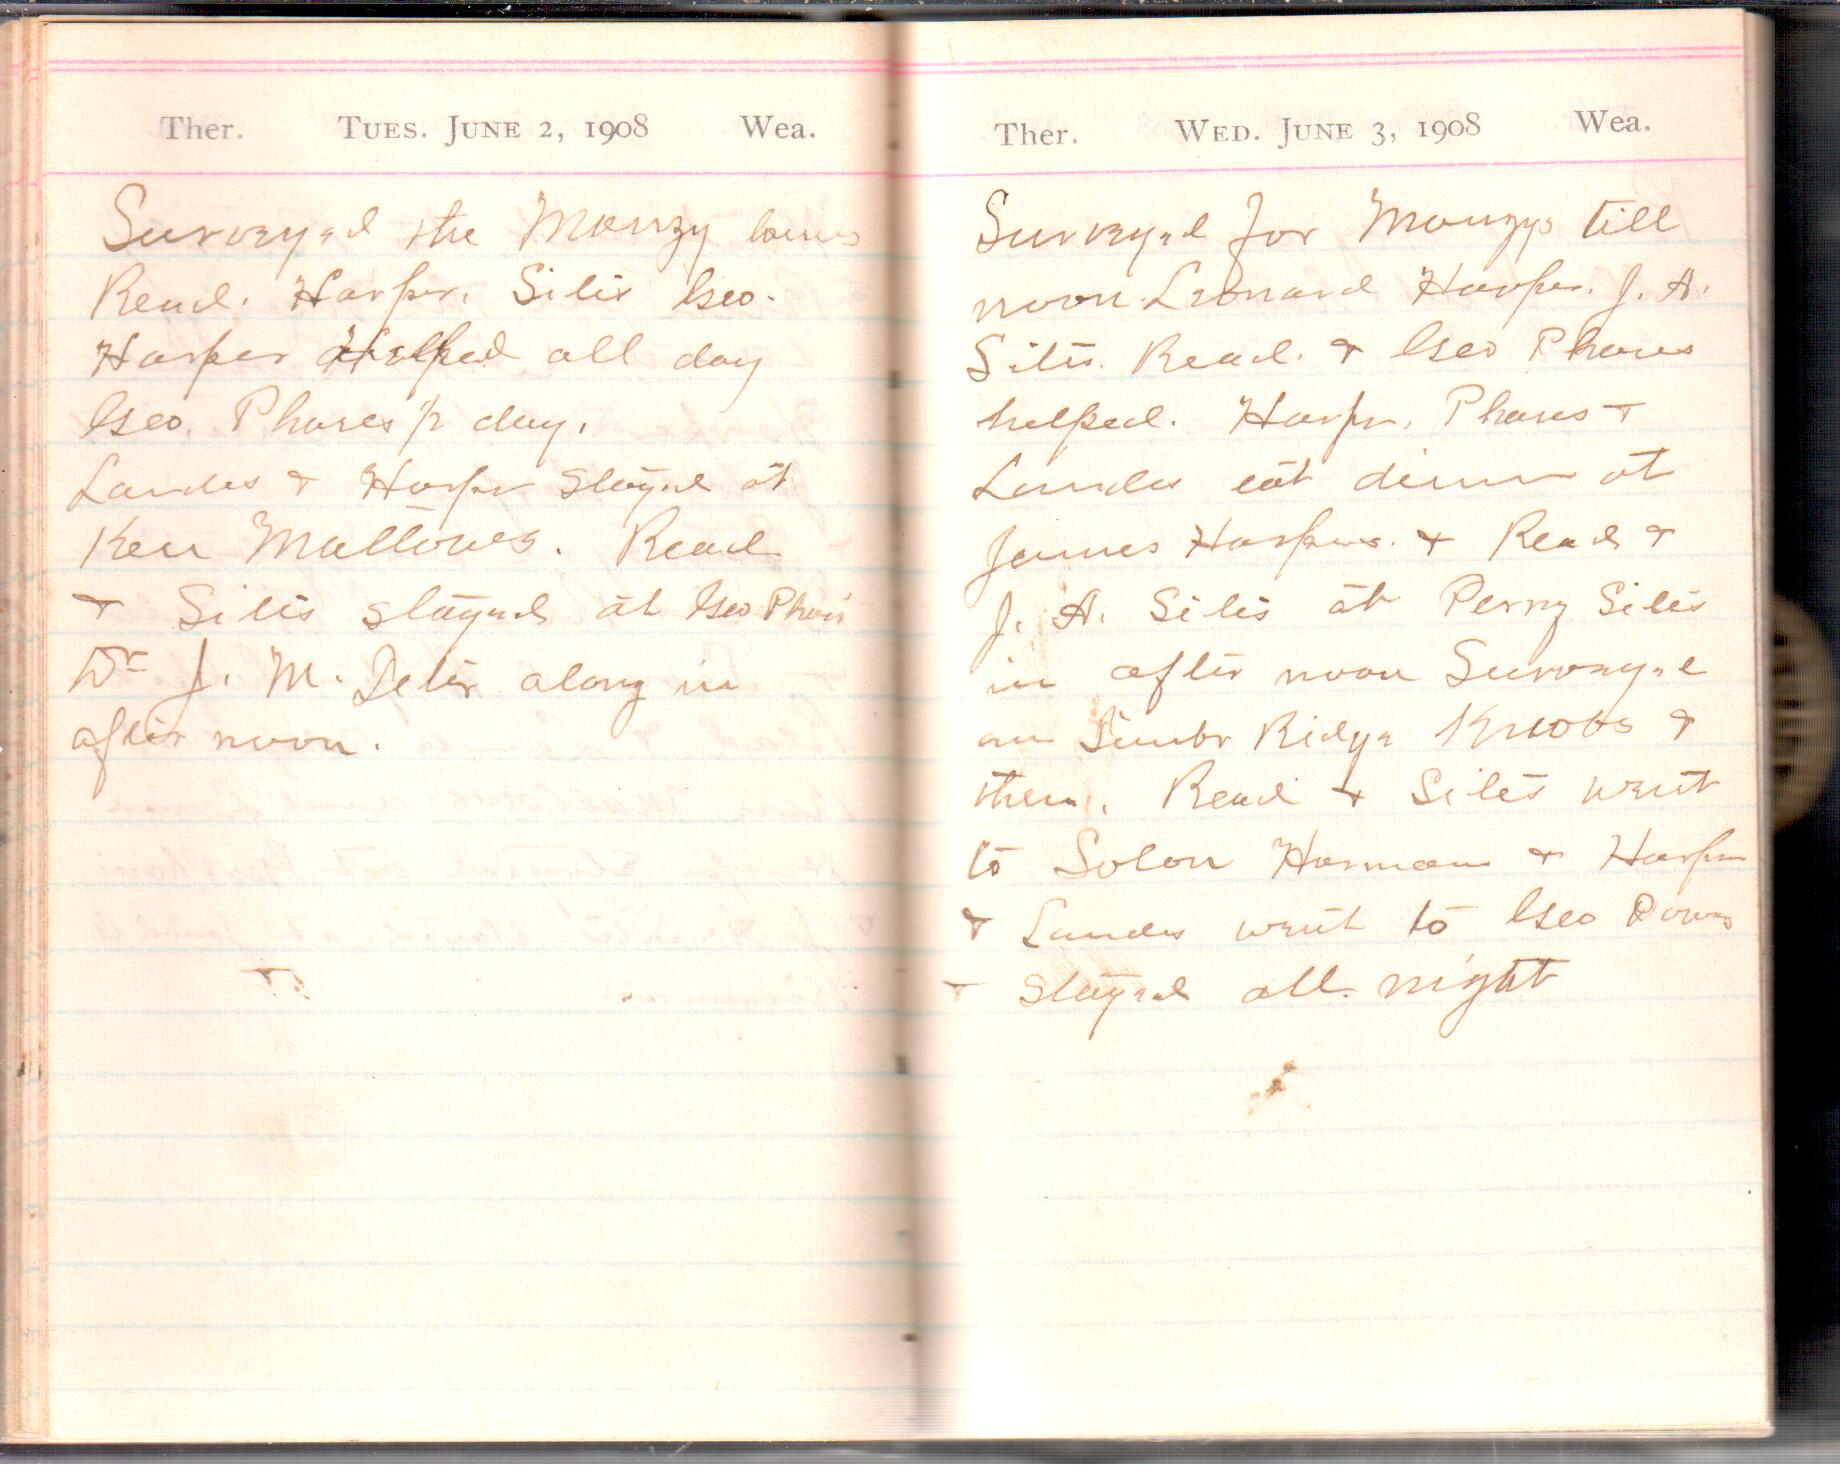 Ther. TUES. JUNE 2, 1908 Wea.
Surveyed the Mouzy
Read. Harper. Sites Geo.
Harper Helped all day
Geo. Phares 1/2 day.
Landes & Harper stayed at
Ken Mallows. Read
& Sites stayed at Geo Phars
Dr J. M. Deter along in
after noon.
Ther. WED. JUNE 3, 1908 Wea.
Surveyed for Mouzys till
noon. Leonard Harper. J. A.
Sites. Read. & Geo Phares
helped. Harper, Phares &
Landes eat dinner at
James Harpers. & Read &
J. A. Sites at Perry Sites
in after noon Surveyed
on Timber Ridge Knobs &
then. Read & Sites went
to Solon Harman & Harper
& Landes went to Geo
& stayed all night